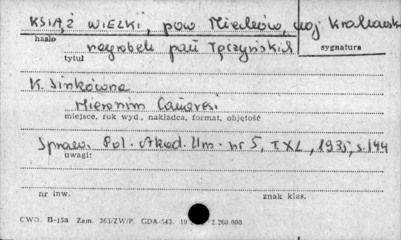 KSIĄŻ WIELKI, pow. Miechów, woj Krakowsk
hasło
nagrobek pań Tęczyńskich
sygnatura
tytuł
K. Sinkówna
Hieronim Canavesi
miejsce, rok wyd., nakładca, format, objętość
Spraw. Pol. Akad. Um. nr 5, T. XL, 1935, s. 144
uwagi:
nr inw.
znak klas.
CWD. B-15a Zam. 363/ZW/P. GDA-543. 19 2.260.000.